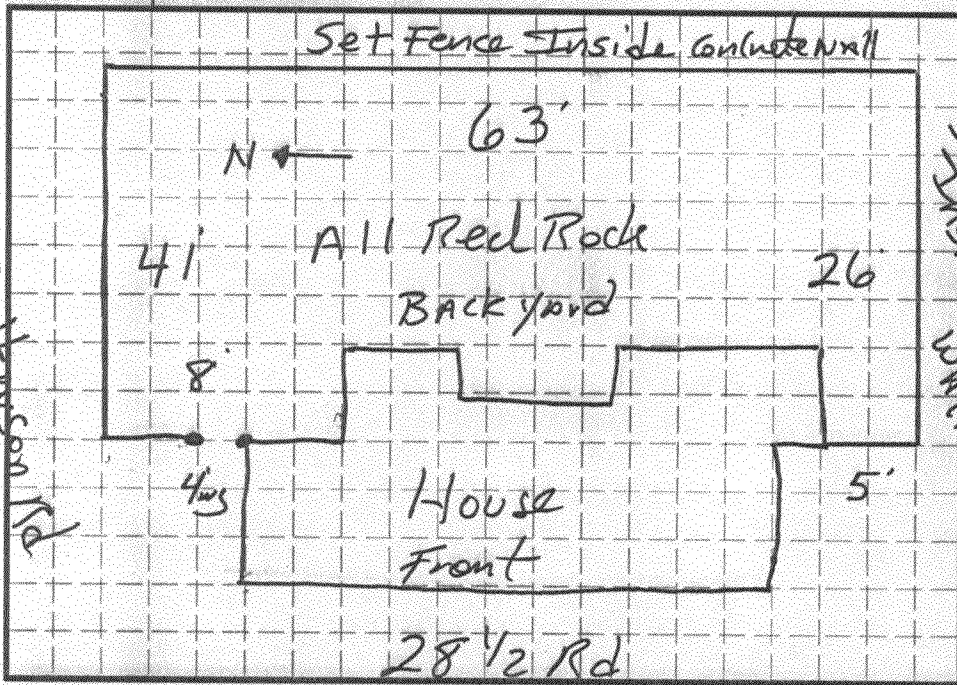 Set Fence Inside Concrete Wall
63'
N
41'
All Red Rock
26'
Backyard
8'
4' wg
House
5'
Front
28 1/2 Rd